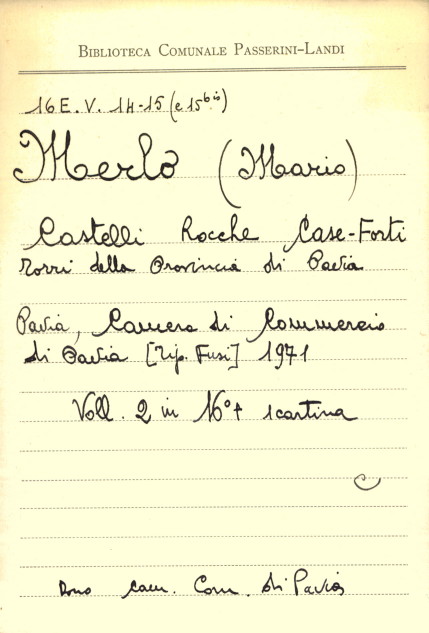 BIBLIOTECA COMUNALE PASSERINI-LANDI
16 E. V. 14-15 (e 15bis)
Merlo (Mario)
Castelli Rocche Case-Forti
Torri della Provincia di Pavia
Pavia, Camera di Commercio
di Pavia [Tip. Fusi] 1971
Voll. 2 in 16° + 1 cartina
Dono Cam. Com. di Pavia